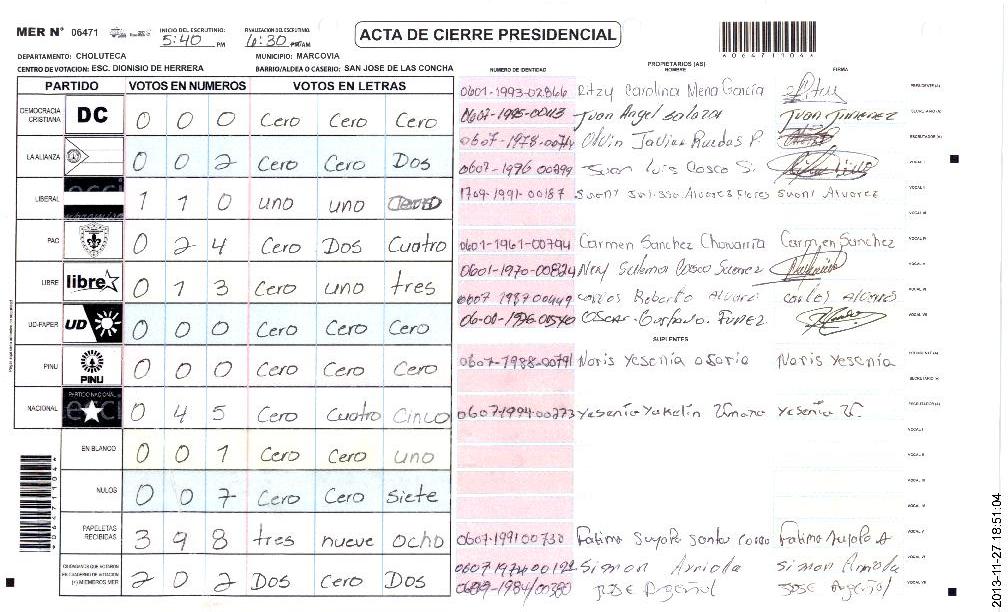 MER N° 06471 INICIO DEL ESCRUTINIO: 5:40 PM FINALIZACION DEL ESCRUTINIO: 6:30 PM/AM ACTA DE CIERRE PRESIDENCIAL
*06471104*
DEPARTAMENTO: CHOLUTECA MUNICIPIO: MARCOVIA
CENTRO DE VOTACION: ESC. DIONISIO DE HERRERA BARRIO/ALDEA O CASERIO: SAN JOSE DE LAS CONCHA
PARTIDO VOTOS EN NUMEROS VOTOS EN LETRAS
DEMOCRACIA CRISTIANA DC 0 0 0 Cero Cero Cero
LA ALIANZA 0 0 2 Cero Cero Dos
LIBERAL 1 1 0 uno uno Cero
PAC 0 2 4 Cero Dos Cuatro
LIBRE libre 0 1 3 Cero uno tres
UD-FAPER UD 0 0 0 Cero Cero Cero
PINU PINU 0 0 0 Cero Cero Cero
NACIONAL PARTIDO NACIONAL 0 4 5 Cero Cuatro Cinco
EN BLANCO 0 0 1 Cero Cero uno
NULOS 0 0 7 Cero Cero siete
PAPELETAS RECIBIDAS 3 9 8 tres nueve ocho
CIUDADANOS QUE VOTARON EN CUADERNO DE VOTACION (+) MIEMBROS MER 2 0 2 Dos Cero Dos
*06471104*
NUMERO DE IDENTIDAD PROPIETARIOS (AS) NOMBRE FIRMA
0601-1993-02866 Ritzy Carolina Mena García PRESIDENTE (A)
Juan Angel Salazar Juan SECRETARIO (A)
Javier P. ESCRUTADOR (A)
0607-1996 00299 Juan Luis Cosco S. VOCAL I
1709-1991-00187 Suany Alvarez Flores Suany Alvarez VOCAL II
VOCAL III
0601-1961-00794 Carmen Sanchez Chavarria Carmen Sanchez VOCAL IV
0601-1970-00824 VOCAL V
0607 1987 00449 Carlos Roberto Carlos VOCAL VI
Oscar Gustavo Funez VOCAL VII
SUPLENTES
0607-1988-00791 Noris Yesenia Osorio Noris Yesenia PRESIDENTE (A)
SECRETARIO (A)
0607-1994-00273 Yesenia Yakelin Yesenia ESCRUTADOR (A)
VOCAL I
VOCAL II
VOCAL III
VOCAL IV
0607-1991 00730 Fatima Suyapa Fatima Suyapa A VOCAL V
Simon Arriola Simon Arriola VOCAL VI
Jose Jose VOCAL VII
2013-11-27 18:51:04